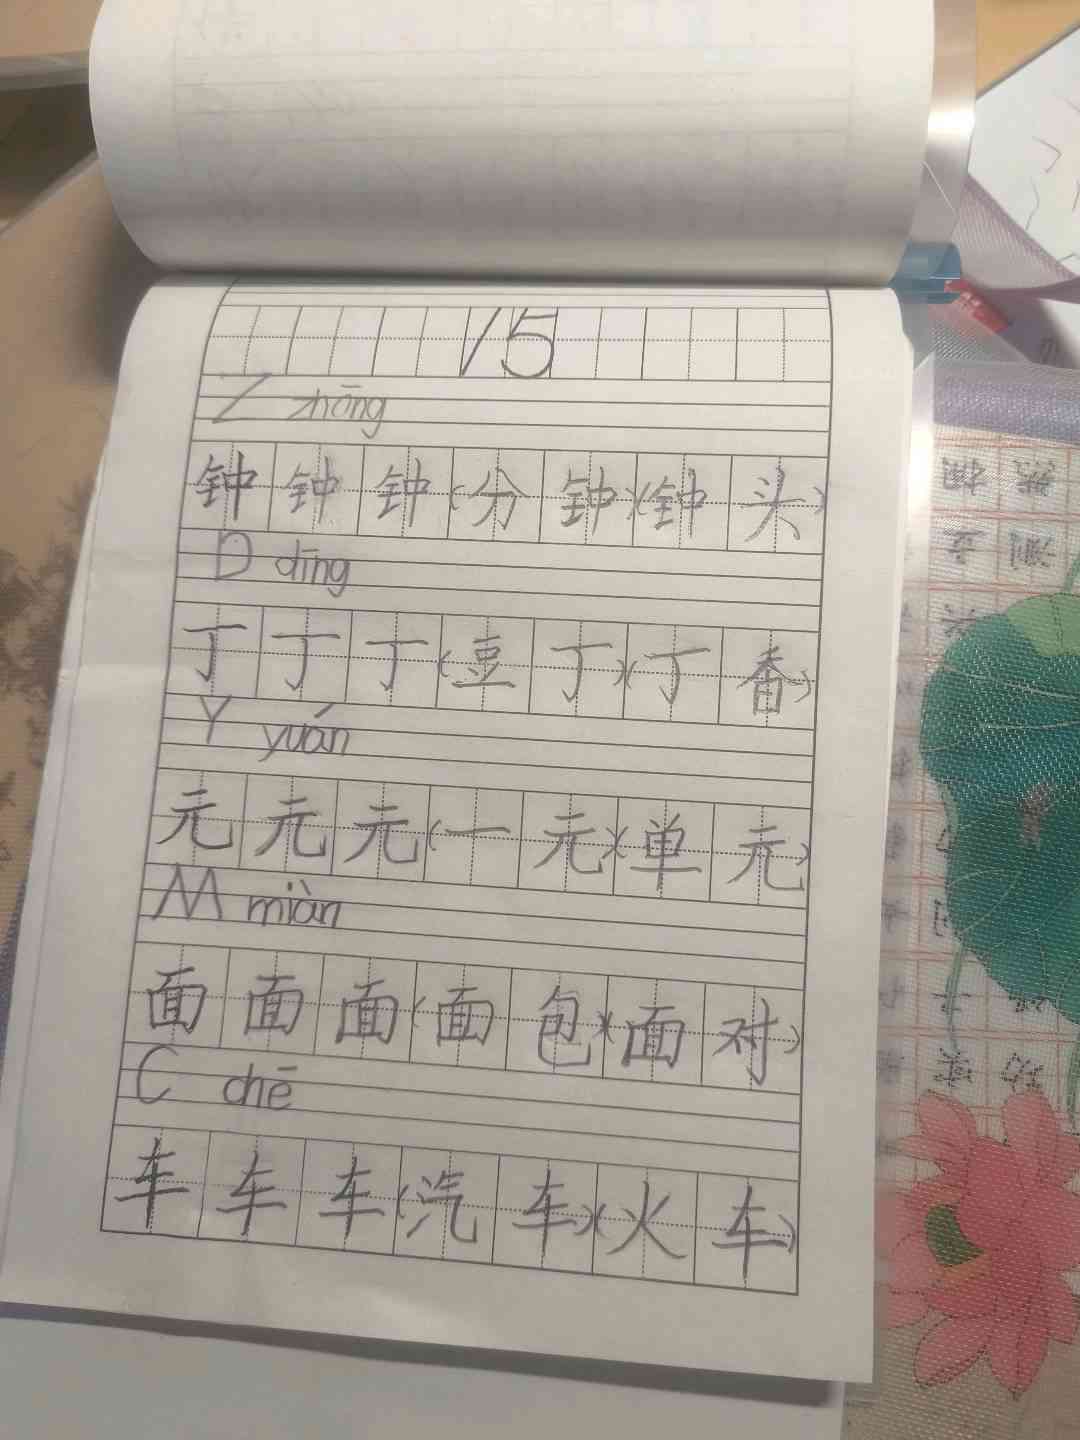 15
Z zhōng
钟钟钟(分钟)(钟头)
D dīng
丁丁丁(豆丁)(丁香)
Y yuán
元元元(一元)(单元)
M miàn
面面面(面包)(面对)
C chē
车车车(汽车)(火车)